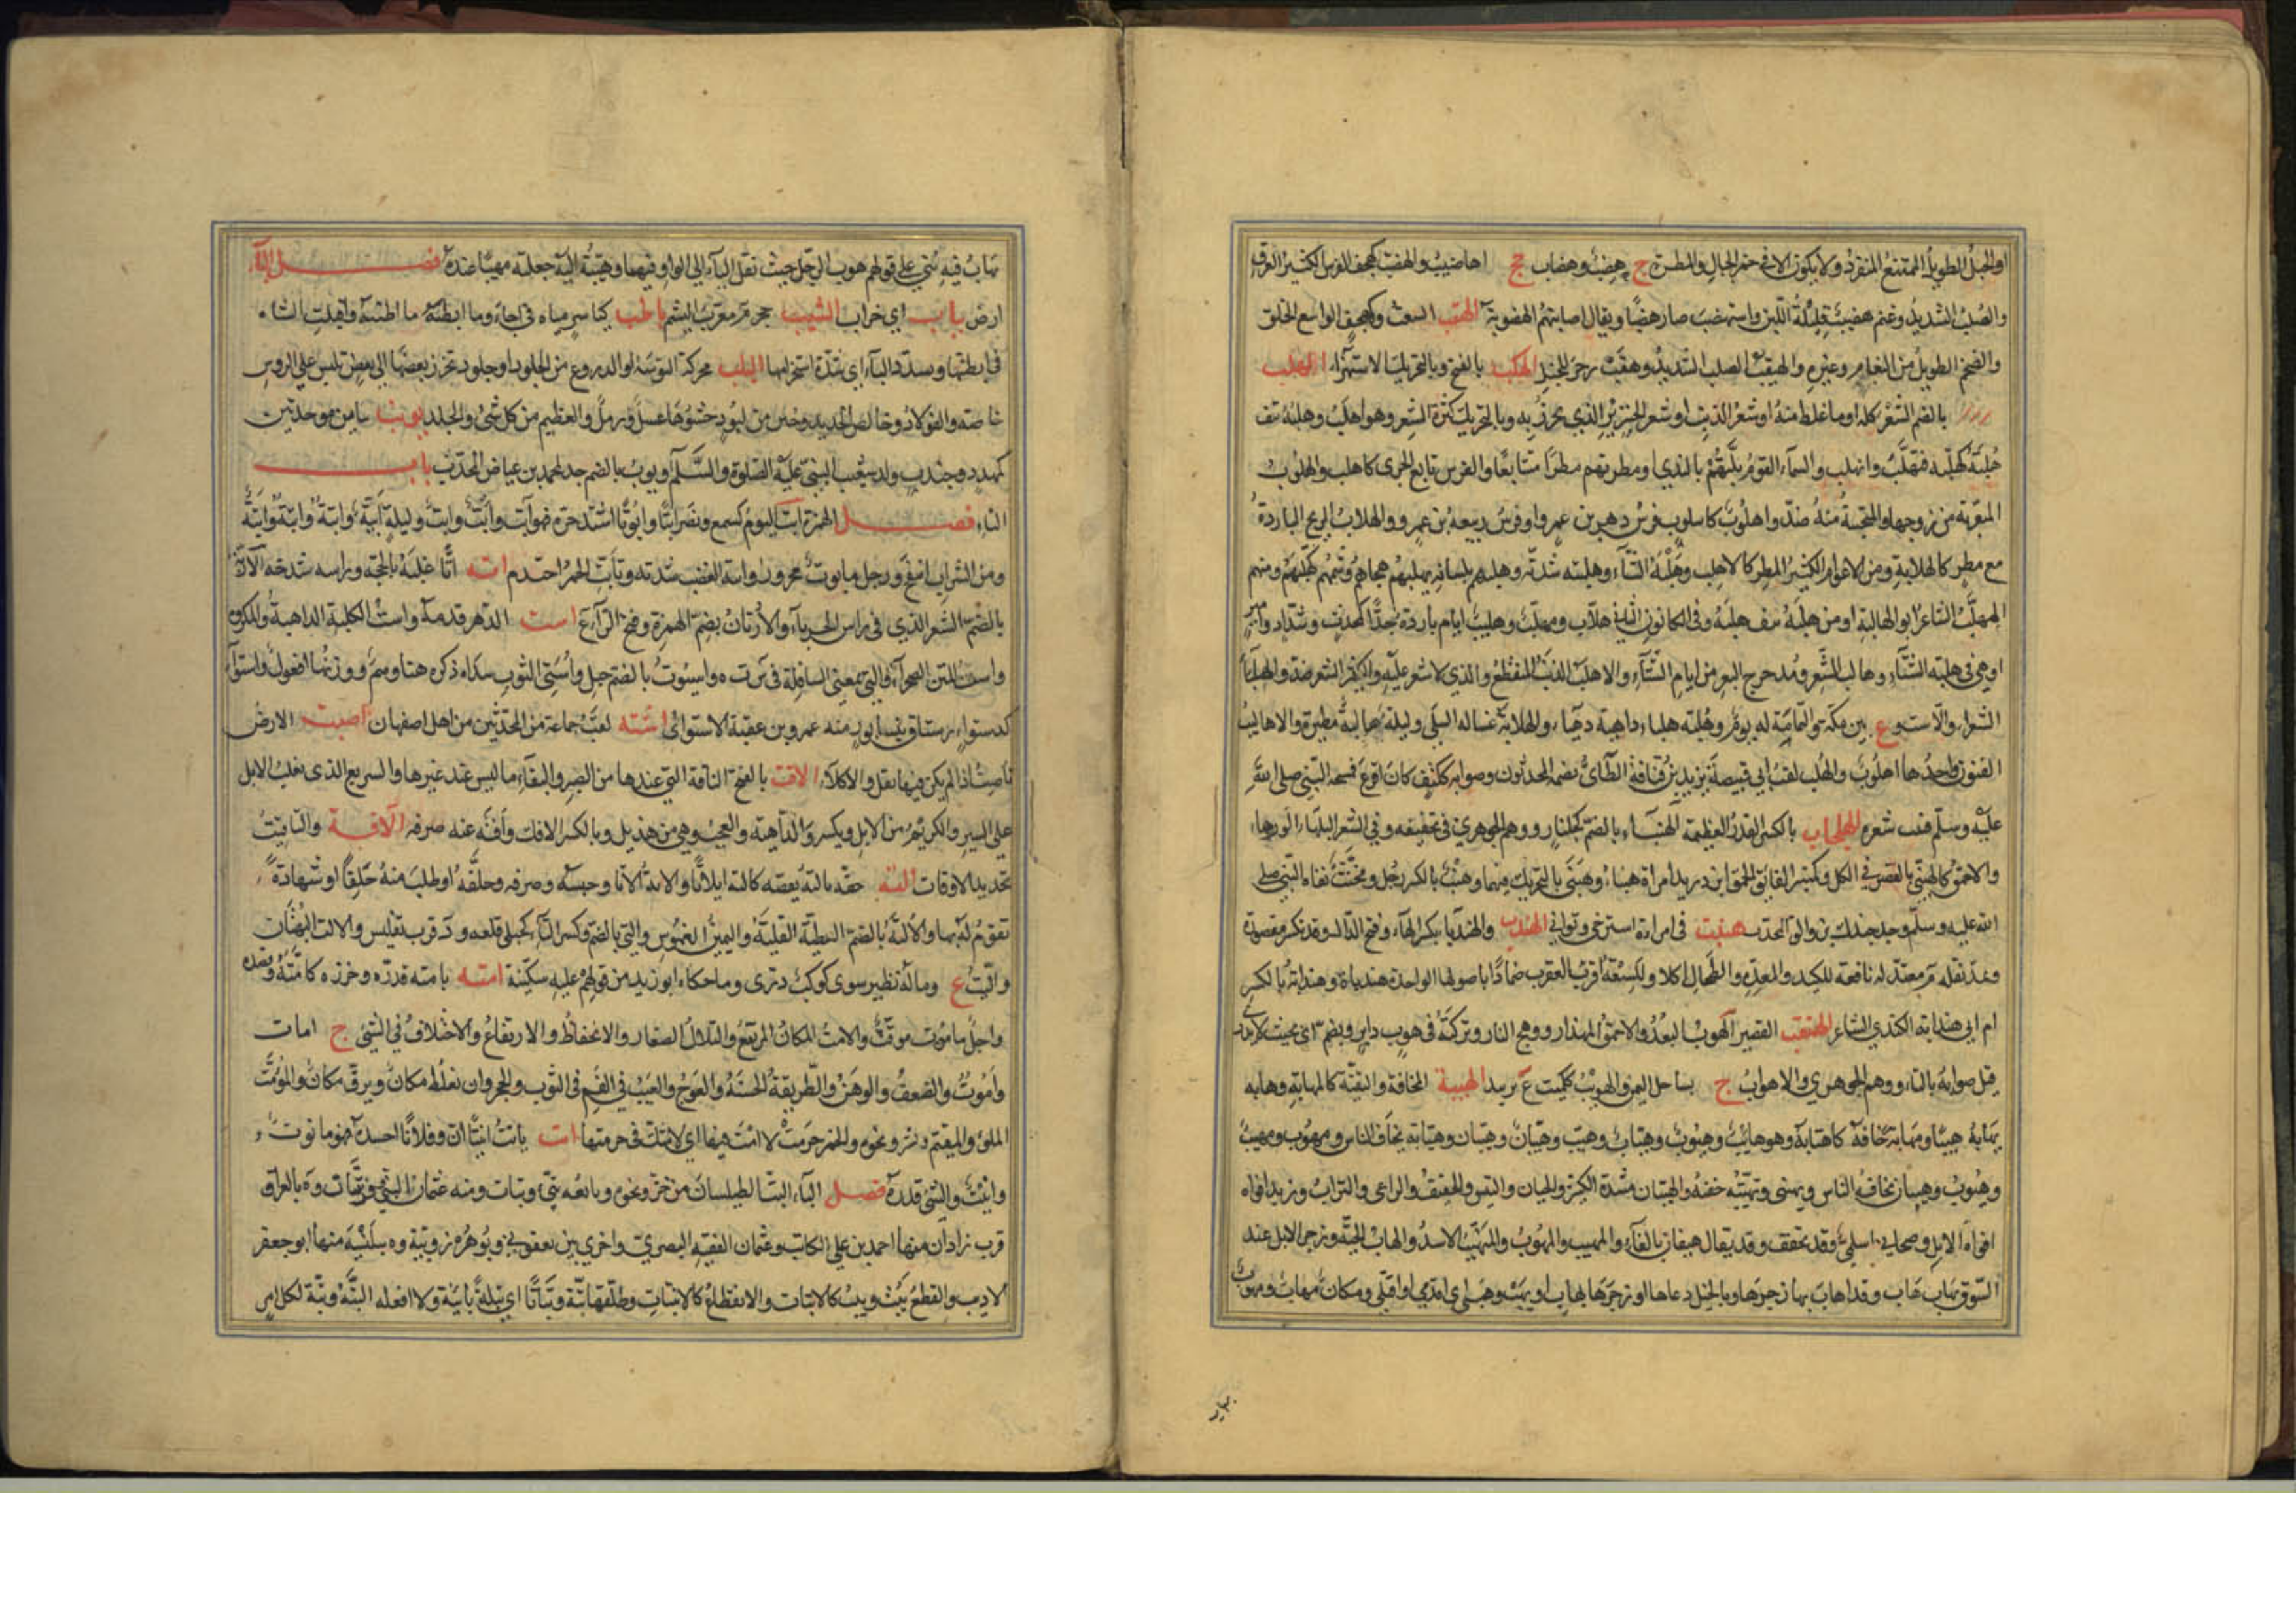 اوالجبل الطويل الممتنع المنفرد ولا يكون الا في حمر الجبال والمطرة ج هضب وهضاب جج اهاضيب والهضب كهجف الفرس الكثير العرق
والصلب الشديد وغنم هضبة قليلة اللبن واستهضب صار هضبا ويقال اصابتهم اهضوبة الهقب السعة وكهجف الواسع الحلق
والضخم الطويل من النعام وغيره والهيقب الصلب الشديد وهقب زجر للخيل الهكب بالفتح وبالتحريك الاستهزاء الهلب
بالضم الشعر كله او ما غلظ منه او شعر الذنب او شعر الخنزير الذي يخرز به وبالتحريك كثرة الشعر وهو اهلب وهلبه نتف
هلبه كهلبه فتهلب وانهلب والسماء القوم بلتهم بالندى او مطرتهم مطرا متتابعا والفرس تابع الجري كاهلب والهلوب
المتقربة من زوجها والمتجنبة منه ضد واهلوب كاسلوب فرس دهر بن عمرو او فرس ربيعة بن عمرو والهلاب الريح الباردة
مع مطر كالهلابة ومن الاعوام الكثير المطر كالاهلب وهلبة الشتاء وهلبته شدته وهلبهم بلسانه يهلبهم هجاهم وشتمهم كهلبهم ومنهم
المهلب الشاعر ابو المهالبة او من هلبه نتف هلبه وفي الكانون الثاني هلاب ومهلب وهليب ايام باردة جدا كمحدث وشداد وامير
او هي في هلبة الشتاء وهالب الشعر ومدحرج البعر من ايام الشتاء والاهلب الذنب المنقطع والذي لا شعر عليه والكثير الشعر ضد والهلباء
الشعراء والاست وع بين مكة واليمامة له يوم وهلبة هلباء داهية دهياء والهلابة غسالة السلى وليلة هالبة مطيرة والاهاليب
الفنون واحدها اهلوب والهلب لقب ابي قبيصة يزيد بن قنافة الطائي يضمه المحدثون وصوابه ككتف كان اقرع فمسحه النبي صلى الله
عليه وسلم فنبت شعره الهلجاب بالكسر القدر العظيمة الهنباء بالضم كجلنار ووهم الجوهري في تخفيفه وفي الشعر البلهاء الورهاء
والاحمق كالهنبى بالقصر في الكل وكمنبر الفائق الحمق ابن دريد امراة هنباء وهنبى بالتحريك فيهما وهنب بالكسر رجل ومخنث نفاه النبي صلى
الله عليه وسلم وجد جندل بن والق المحدث هنبت في امره استرخى وتوانى الهندب والهندبا بكسر الهاء وفتح الدال وقد تكسر مقصورة
وتمد بقلة م معتدلة نافعة للكبد والمعدة والطحال اكلا وللسعة العقرب ضمادا باصولها الواحدة هندباة وهندابة بالكسر
ام ابي هندابة الكندي الشاعر الهنقب القصير الهوب البعد والاحمق المهذار ووهج النار وتركته في هوب دابر ويضم اي بحيث لا يدرى
قيل صوابه بالتاء ووهم الجوهري والاهواب ج بساحل اليمن والهويب كزبير ع بزبيد الهيبة المخافة والتقية كالمهابة وهابه
يهابه هيبا ومهابة خافه كاهتابه وهو هائب وهيوب وهياب وهيب وهيبان وهيبان وهيابة يخاف الناس ومهوب ومهيب
وهيوب وهيبان يخافه الناس وتهيبني وتهيبته خفته والهيبان مشددة الكثير والجبان والتيس والخفيف والراعي والتراب وزبد افواه
افواه الابل وصحابي اسلمي وقد تخفف وقد يقال هيفان بالفاء والمهيب والمهوب والمتهيب الاسد والهاب الحية وزجر الابل عند
السوق بهاب هاب وقد اهاب بها زجرها وبالخيل دعاها او زجرها بهاب او بهب وهبي اي اقدمي او اقبلي ومكان مهاب ومهوب
يهاب
يهاب فيه بني على قولهم هوب الرجل حيث نقل الياء الى الواو فيهما وهيبته اليه جعلته مهيبا عنده فصل الياء
ارض يباب اي خراب اليشب حجر م معرب اليشم ياطب كياسر مياه في اجاء وما ايطبه ما اطيبه واقبلت الشاة
في ايطبتها وتشدد الباء اي شدة استحرامها اليلب محركة الترسة او الدروع من الجلود او جلود تخرز بعضها الى بعض تلبس على الروس
خاصة والفولاذ وخالص الحديد وجنن من لبود حشوها عسل ورمل والعظيم من كل شيء والجلد يوبب بباءين موحدتين
كمهدد وجندب والد شعيب النبي عليه الصلوة والسلم ويوب بالضم جد لمحمد بن عياض المحدث باب
التاء فصل الهمزة ابت اليوم كسمع ونصر ابتا وابوتا اشتد حره فهو آبت وابت وابت وليلة آبتة وابتة وابتة وابتة
ومن الشراب انتفخ ورجل مابوت محرور وابتة الغضب شدته وتابت الجمر احتدم اته اتا غلبه بالحجة وراسه شدخه الارتة
بالضم الشعر الذي في راس الحرباء والارتان بضم الهمزة وفتح الراء ع است الدهر قدمه واست الكلبة الداهية والمكروه
واست المتن الصحراء والتي بمعنى السافلة في س ت ه واسيوت بالضم جبل واستي الثوب سداه ذكره هنا وهم ووزنها افعول واستواء
كدستواء رستاق بنيسابور منه عمرو بن عقبة الاستوائي اشته لقب جماعة من المحدثين من اهل اصفهان اصت الارض
تاصت اذا لم يكن فيها بقل ولا كلاء الافت بالفتح الناقة التي عندها من الصبر والبقاء ما ليس عند غيرها والسريع الذي يغلب الابل
على السير والكريم من الابل ويكسر والداهية والعجب وهي من هذيل وبالكسر الافك وافته عنه صرفه الاقت والتاقيت
تحديد الاوقات الته حقه يالته نقصه كآلته ايلاتا والاته الاتا وحبسه وصرفه وحلفه او طلب منه حلفا او شهادة
تقوم له بها والالتة بالضم العطية القليلة واليمين الغموس والتي بالضم وكسر التاء كحبلي قلعة ود قرب تفليس والالت البهتان
والت ع وماله نظير سوى كوكب دري وما حكاه ابو زيد من قولهم عليه سكينة امته يامته قدره وحزره كامته وقصده
واجل ماموت موقت والامت المكان المرتفع والتلال الصغار والانخفاض والارتفاع والاختلاف في الشيء ج امات
واموت والضعف والوهن والطريقة الحسنة والعوج والعيب في الفم في الثوب والحجر وان يغلظ مكان ويرق مكان والموت
المملو والمتهم بالشر ونحوه والخمر حرمت لا امت فيها اي لا شك في حرمتها انت يانت انيتا ان وفلانا حسده فهو مانوت
وانيت والشيء قدره فصل الباء البت الطيلسان من خز ونحوه وبائعه بتي وبتات ومنه عثمان البتي وفرسان وة بالعراق
قرب راذان منها احمد بن علي الكاتب وعثمان الفقيه البصري واخرى بين بعقوبا وبوهرز وبتة وة ببلنسية منها ابو جعفر
الاديب والقطع يبت ويبت كالابتات والانقطاع كالانبتات وطلقها بتة وبتاتا اي بتلة بائنة ولا افعله البتة وبتة لكل امر